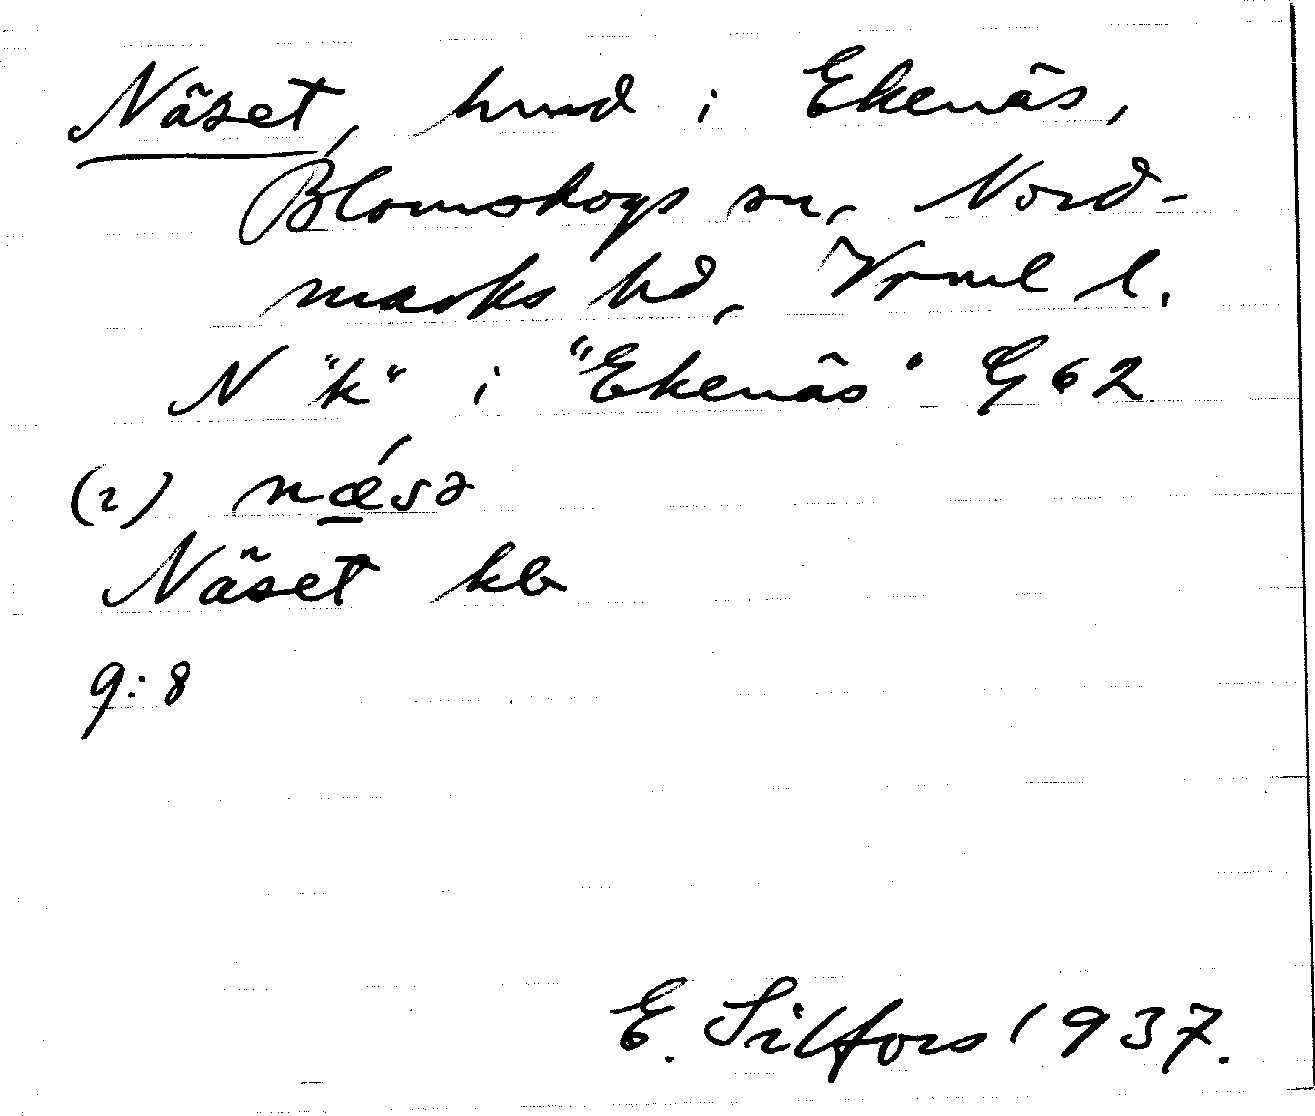 Näset, hmd i Ekenäs,
Blomskogs sn, Nord-
marks hd, Vrml l.
N "k" i "Ekenäs" G 62
(2) nǽ̱sə
Näset kb
9:8
E. Silfors 1937.